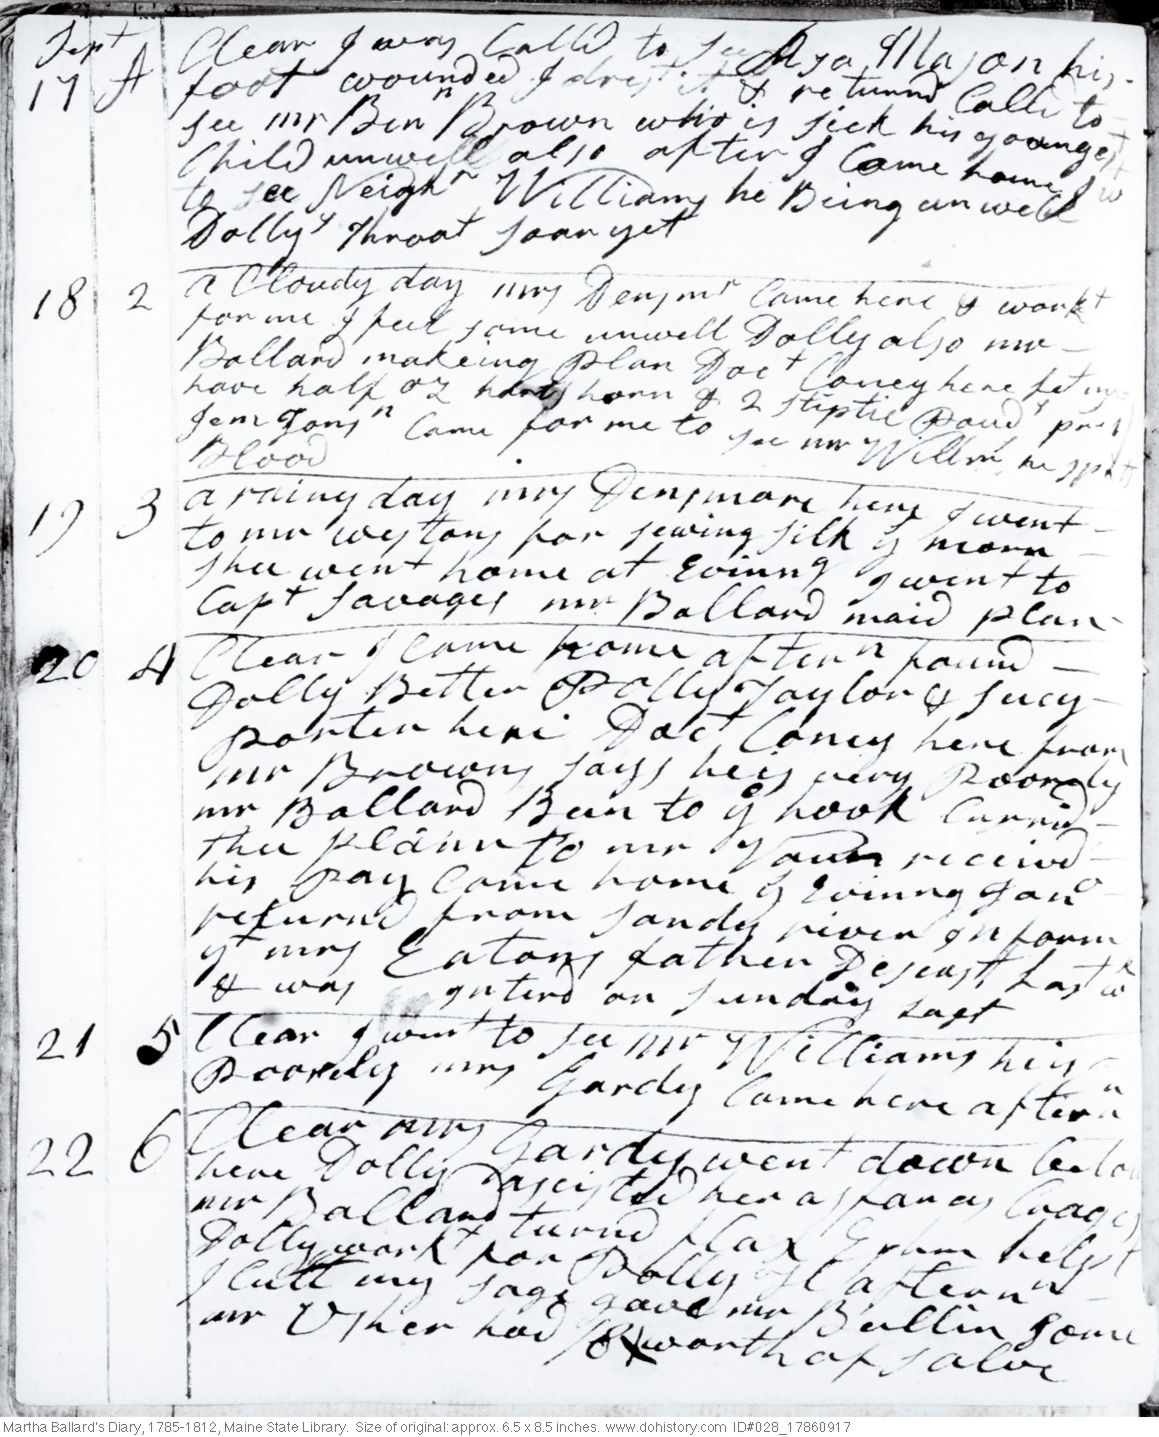 Sept
17 A Clear I was Calld to see Asa Mason his
foot wounded I drest it & returnd Calld to
see mr Ben^n Brown who is sick his youngest
Child unwell also after I Came home I w
to see Neigh^r Williams he Being unwell
Dolly^s throat soar yet
18 2 a Cloudy day mrs Densm^r Came here & workt
for me I feel some unwell Dolly also mr
Ballard makeing plan Doc^t Coney here let me
have half oz hartshorn & 2 stiptic Poud^s
Jem Jons^n Came for me to see mr Willm^s he spits
Blood
19 3 a rainy day mrs Densmore here I went
to mr westons for sewing silk y^e morn
shee went home at Evinng I went to
Cap^t Savages mr Ballard maid plan
20 4 Clear I Came home aftern^n found
Dolly Better Polly Taylor & Lucy
porter here Doc^t Coney here from
mr Browns says he is very Poorly
mr Ballard Been to y^e hook Carrid
thee plann to mr Vaun receivd
his pay Came home y^e Evinng Jon^o
returnd from Sandy river Inform
y^t mrs Eatons father Deseast last w^k
& was Interd on Sunday last
21 5 Clear I went to see mr Williams he is
Poorely mrs Gardy Came here aftern^n
22 6 Clear mrs Gardy went down below
here Dolly assisted her asparas Crages
mr Ballard turnd flax Ephm helpt
Dolly workt for Polly Sl aftern^n
I Cutt my sage gave mr Bullin some
mr Usher had /8 worth of salve
Martha Ballard's Diary, 1785-1812, Maine State Library. Size of original: approx. 6.5 x 8.5 inches. www.dohistory.com ID#028_17860917